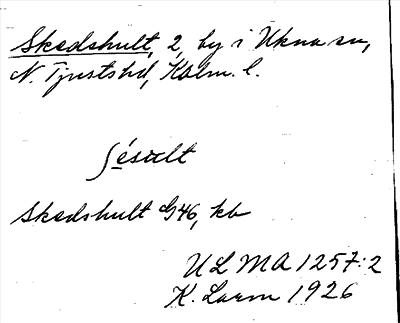 Skedshult, 2, by i Ukna sn,
N. Tjusts hd, Kalm. l.
ʃésult
Skedshult G46, kb
ULMA 1257:2
K. Larm 1926